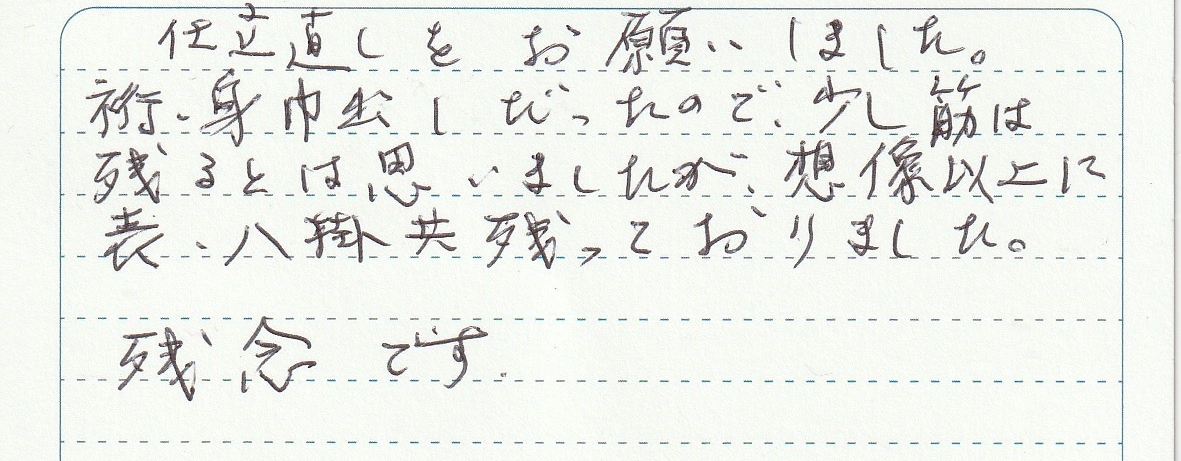 仕立直しをお願いしました。
裄、身巾出しだったので、少し筋は
残るとは思いましたが、想像以上に
表、八掛共残っておりました。
残念です.